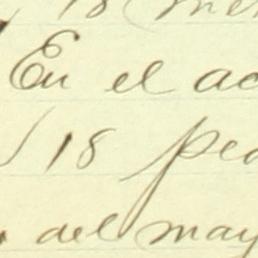 18
En el ac
18 ped
del may